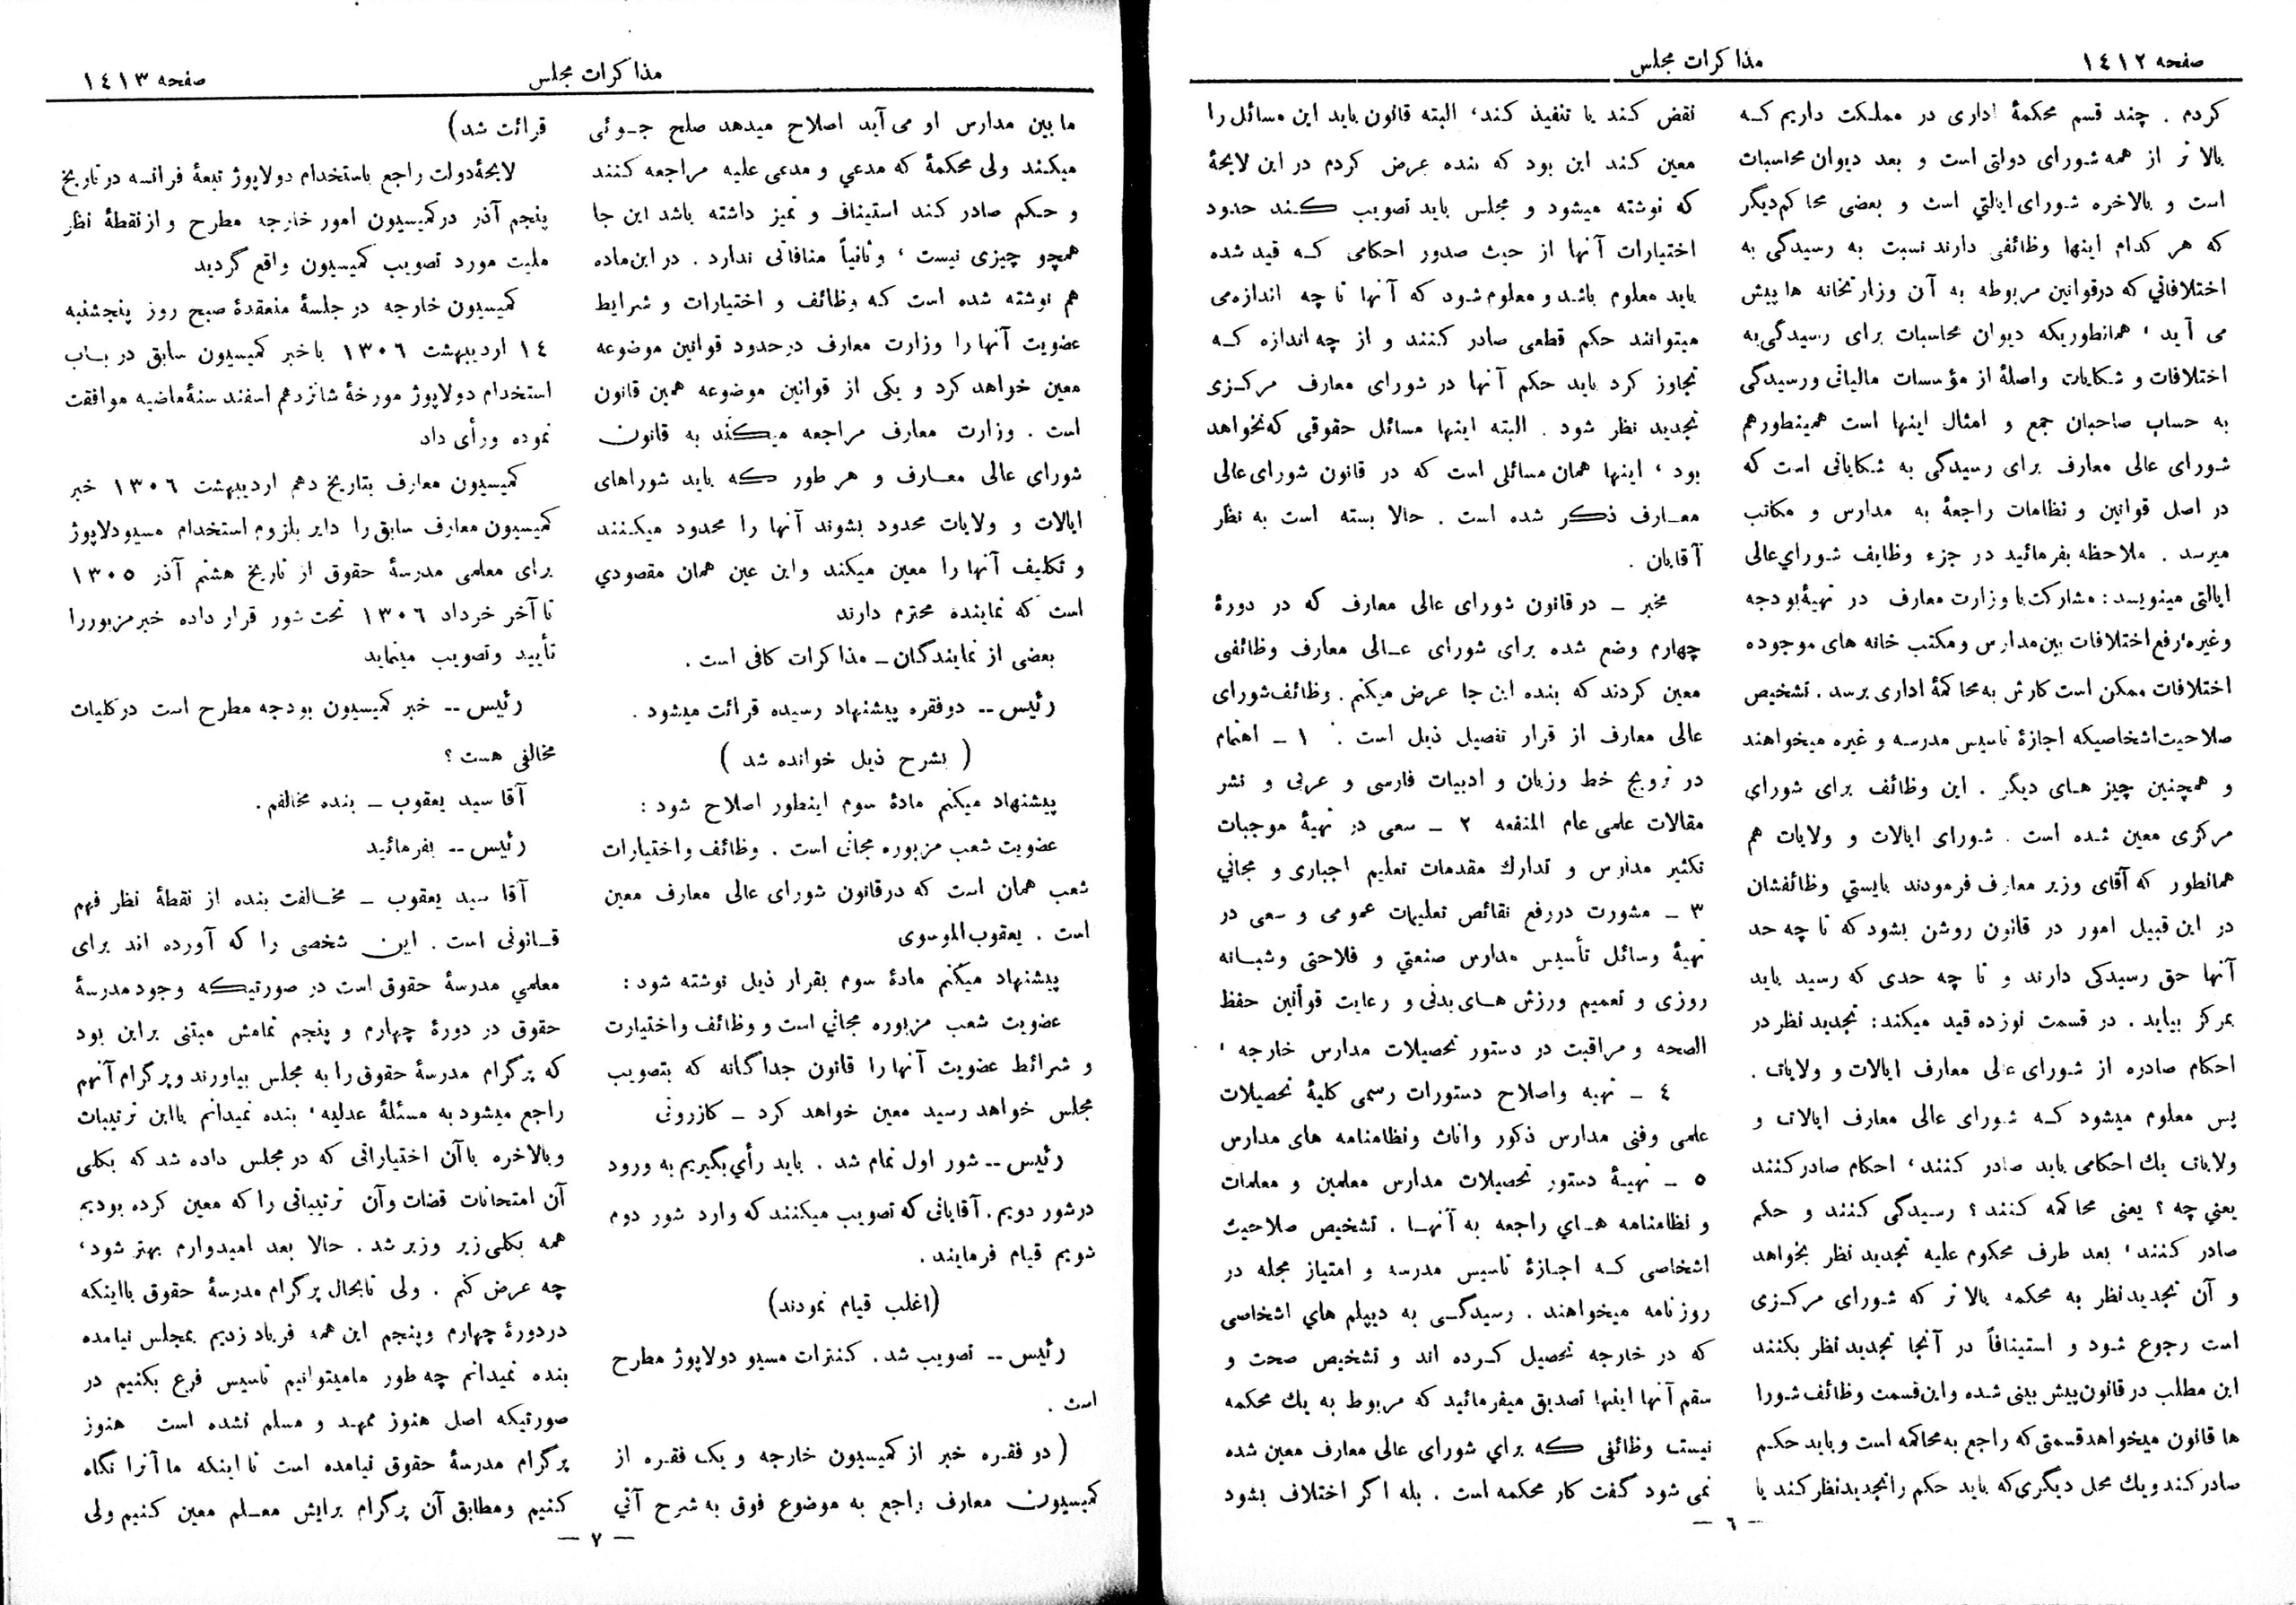 صفحه ۱٤۱۲
مذاکرات مجلس
کردم . چند قسم محکمهٔ اداری در مملکت داریم که
بالا تر از همه شورای دولتی است و بعد دیوان محاسبات
است و بالاخره شورای ایالتي است و بعضی محاکم دیگر
که هر کدام اینها وظائفی دارند نسبت به رسیدگی به
اختلافاتي که درقوانین مربوطه به آن وزارتخانه ها پیش
می آید ، همانطوریکه دیوان محاسبات برای رسیدگی به
اختلافات و شکایات واصلهٔ از مؤسسات مالیاتی ورسیدگی
به حساب صاحبان جمع و امثال اینها است همینطورهم
شورای عالی معارف برای رسیدگی به شکایاتی است که
در اصل قوانین و نظامات راجعهٔ به مدارس و مکاتب
میرسد . ملاحظه بفرمائید در جزء وظایف شوراي عالی
ایالتی مینویسد : مشارکت با وزارت معارف در تهیهٔ بودجه
وغیره ، رفع اختلافات بین مدارس و مکتب خانه های موجوده
اختلافات ممکن است کارش به محاکمهٔ اداری برسد . تشخیص
صلاحیت اشخاصیکه اجازهٔ تاسیس مدرسه و غیره میخواهند
و همچنین چیز های دیگر . این وظائف برای شورای
مرکزی معین شده است . شورای ایالات و ولایات هم
همانطور که آقای وزیر معارف فرمودند بایستي وظائفشان
در این قبیل امور در قانون روشن بشود که تا چه حد
آنها حق رسیدگی دارند و تا چه حدی که رسید باید
بمرکز بیاید . در قسمت نوزده قید میکند : تجدید نظر در
احکام صادره از شورای عالی معارف ایالات و ولایات .
پس معلوم میشود که شورای عالی معارف ایالات و
ولایات یك احکامی باید صادر کنند ، احکام صادر کنند
یعني چه ؟ یعنی محاکمه کنند ؟ رسیدگی کنند و حکم
صادر کنند ، بعد طرف محکوم علیه تجدید نظر بخواهد
و آن تجدید نظر به محکمه بالا تر که شورای مرکزی
است رجوع شود و استینافاً در آنجا تجدید نظر بکنند
این مطلب در قانون پیش بینی شده و این قسمت وظائف شورا
ها قانون میخواهد قسمتي که راجع به محاکمه است و باید حکم
صادر کند و یك محل دیگری که باید حکم را تجدید نظر کند یا
نقض کند یا تنفیذ کند ، البته قانون باید این مسائل را
معین کند این بود که بنده عرض کردم در این لایحهٔ
که نوشته میشود و مجلس باید تصویب کند حدود
اختیارات آنها از حیث صدور احکامی که قید شده
باید معلوم باشد و معلوم شود که آنها تا چه اندازه می
میتوانند حکم قطعی صادر کنند و از چه اندازه که
تجاوز کرد باید حکم آنها در شورای معارف مرکزی
تجدید نظر شود . البته اینها مسائل حقوقی که نخواهد
بود ، اینها همان مسائلی است که در قانون شورای عالی
معارف ذکر شده است . حالا بسته است به نظر
آقایان .
مخبر ـ در قانون شورای عالی معارف که در دورهٔ
چهارم وضع شده برای شورای عالی معارف وظائفی
معین کردند که بنده این جا عرض میکنم . وظائف شورای
عالی معارف از قرار تفصیل ذیل است . ۱ ـ اهتمام
در ترویج خط وزبان و ادبیات فارسی و عربی و نشر
مقالات علمی عام المنفعه ۲ ـ سعی در تهیهٔ موجبات
تکثیر مدارس و تدارك مقدمات تعلیم اجباری و مجانی
۳ ـ مشورت در رفع نقائص تعلیمات عمومی و سعی در
تهیهٔ وسائل تأسیس مدارس صنعتي و فلاحتی وشبانه
روزی و تعمیم ورزش های بدنی و رعایت قوانین حفظ
الصحه و مراقبت در دستور تحصیلات مدارس خارجه ،
٤ ـ تهیه واصلاح دستورات رسمی کلیهٔ تحصیلات
علمی وفنی مدارس ذکور واناث ونظامنامه های مدارس
٥ ـ تهیهٔ دستور تحصیلات مدارس معلمین و معلمات
و نظامنامه هاي راجعه به آنها . تشخیص صلاحیت
اشخاصی که اجازهٔ تاسیس مدرسه و امتیاز مجله در
روزنامه میخواهند . رسیدگی به دیپلم هاي اشخاصی
که در خارجه تحصیل کرده اند و تشخیص صحت و
سقم آنها اینها تصدیق میفرمائید که مربوط به یك محکمه
نیست وظائفی که براي شورای عالی معارف معین شده
نمی شود گفت کار محکمه است . بله اگر اختلاف بشود
ـ ٦ ـ
مذاکرات مجلس
صفحه ۱٤۱۳
ما بین مدارس او می آید اصلاح میدهد صلح جوئی
میکند ولی محکمهٔ که مدعي و مدعی علیه مراجعه کنند
و حکم صادر کند استیناف و تمیز داشته باشد این جا
همچو چیزی نیست ، و ثانیاً منافاتی ندارد . در این ماده
هم نوشته شده است که وظائف و اختیارات و شرایط
عضویت آنها را وزارت معارف در حدود قوانین موضوعه
معین خواهد کرد و یکی از قوانین موضوعه همین قانون
است . وزارت معارف مراجعه میکند به قانون
شورای عالی معارف و هر طور که باید شوراهای
ایالات و ولایات محدود بشوند آنها را محدود میکنند
و تکلیف آنها را معین میکند واین عین همان مقصودي
است که نماینده محترم دارند
بعضی از نمایندگان ـ مذاکرات کافی است .
رئیس -- دو فقره پیشنهاد رسیده قرائت میشود .
( بشرح ذیل خوانده شد )
پیشنهاد میکنم مادهٔ سوم اینطور اصلاح شود :
عضویت شعب مزبوره مجانی است . وظائف واختیارات
شعب همان است که در قانون شورای عالی معارف معین
است . یعقوب الموسوی
پیشنهاد میکنم مادهٔ سوم بقرار ذیل نوشته شود :
عضویت شعب مزبوره مجاني است و وظائف واختیارت
و شرائط عضویت آنها را قانون جداگانه که بتصویب
مجلس خواهد رسید معین خواهد کرد ـ کازرونی
رئیس -- شور اول تمام شد . باید رأي بگیریم به ورود
در شور دویم . آقایانی که تصویب میکنند که وارد شور دوم
شویم قیام فرمایند .
(اغلب قیام نمودند)
رئیس -- تصویب شد . کنترات مسیو دولاپوژ مطرح
است .
( دو فقره خبر از کمیسیون خارجه و یک فقره از
کمیسیون معارف راجع به موضوع فوق به شرح آتي
قرائت شد)
لایحهٔ دولت راجع باستخدام دولاپوژ تبعهٔ فرانسه در تاریخ
پنجم آذر در کمیسیون امور خارجه مطرح و از نقطهٔ نظر
ملیت مورد تصویب کمیسیون واقع گردید
کمیسیون خارجه در جلسهٔ منعقدهٔ صبح روز پنجشنبه
۱٤ اردیبهشت ۱۳۰٦ با خبر کمیسیون سابق در باب
استخدام دولاپوژ مورخهٔ شانزدهم اسفند سنهٔ ماضیه موافقت
نموده ورأی داد
کمیسیون معارف بتاریخ دهم اردیبهشت ۱۳۰٦ خبر
کمیسیون معارف سابق را دایر بلزوم استخدام مسیودلاپوژ
برای معلمی مدرسهٔ حقوق از تاریخ هشتم آذر ۱۳۰٥
تا آخر خرداد ۱۳۰٦ تحت شور قرار داده خبر مزبور را
تأیید وتصویب مینماید
رئیس -- خبر کمیسیون بودجه مطرح است در کلیات
مخالفی هست ؟
آقا سید یعقوب ـ بنده مخالفم .
رئیس -- بفرمائید
آقا سید یعقوب ـ مخالفت بنده از نقطهٔ نظر فهم
قانونی است . این شخصی را که آورده اند برای
معلمي مدرسهٔ حقوق است در صورتیکه وجود مدرسهٔ
حقوق در دورهٔ چهارم و پنجم تمامش مبتنی بر این بود
که پرگرام مدرسهٔ حقوق را به مجلس بیاورند و پرگرام آنهم
راجع میشود به مسئلهٔ عدلیه ، بنده نمیدانم با این ترتیبات
وبالاخره با آن اختیاراتی که در مجلس داده شد که بکلی
آن امتحانات قضات وآن ترتیباتی را که معین کرده بودیم
همه بکلی زیر وزبر شد . حالا بعد امیدوارم بهتر شود ،
چه عرض کنم . ولی تابحال پرگرام مدرسهٔ حقوق با اینکه
در دورهٔ چهارم وپنجم این همه فریاد زدیم بمجلس نیامده
بنده نمیدانم چه طور مامیتوانیم تاسیس فرع بکنیم در
صورتیکه اصل هنوز ممهد و مسلم نشده است هنوز
پرگرام مدرسهٔ حقوق نیامده است تا اینکه ما آنرا نگاه
کنیم ومطابق آن پرگرام برایش معلم معین کنیم ولی
ـ ۷ ـ